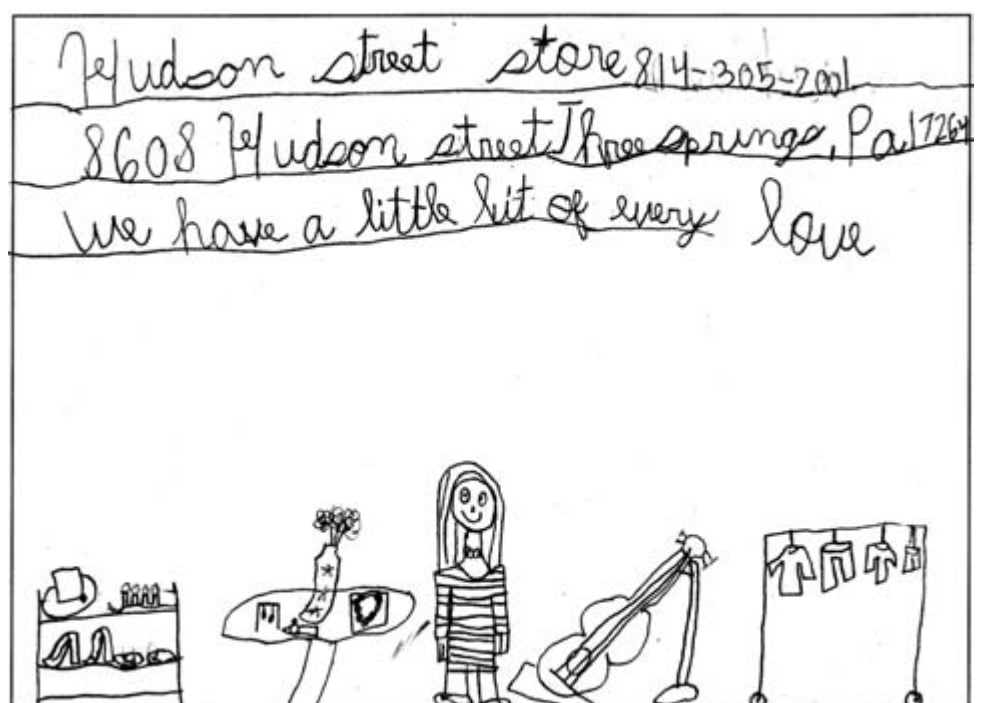 Hudson street store 814-305-2001
8608 Hudson street Three springs, Pa 17264
We have a little bit of every love